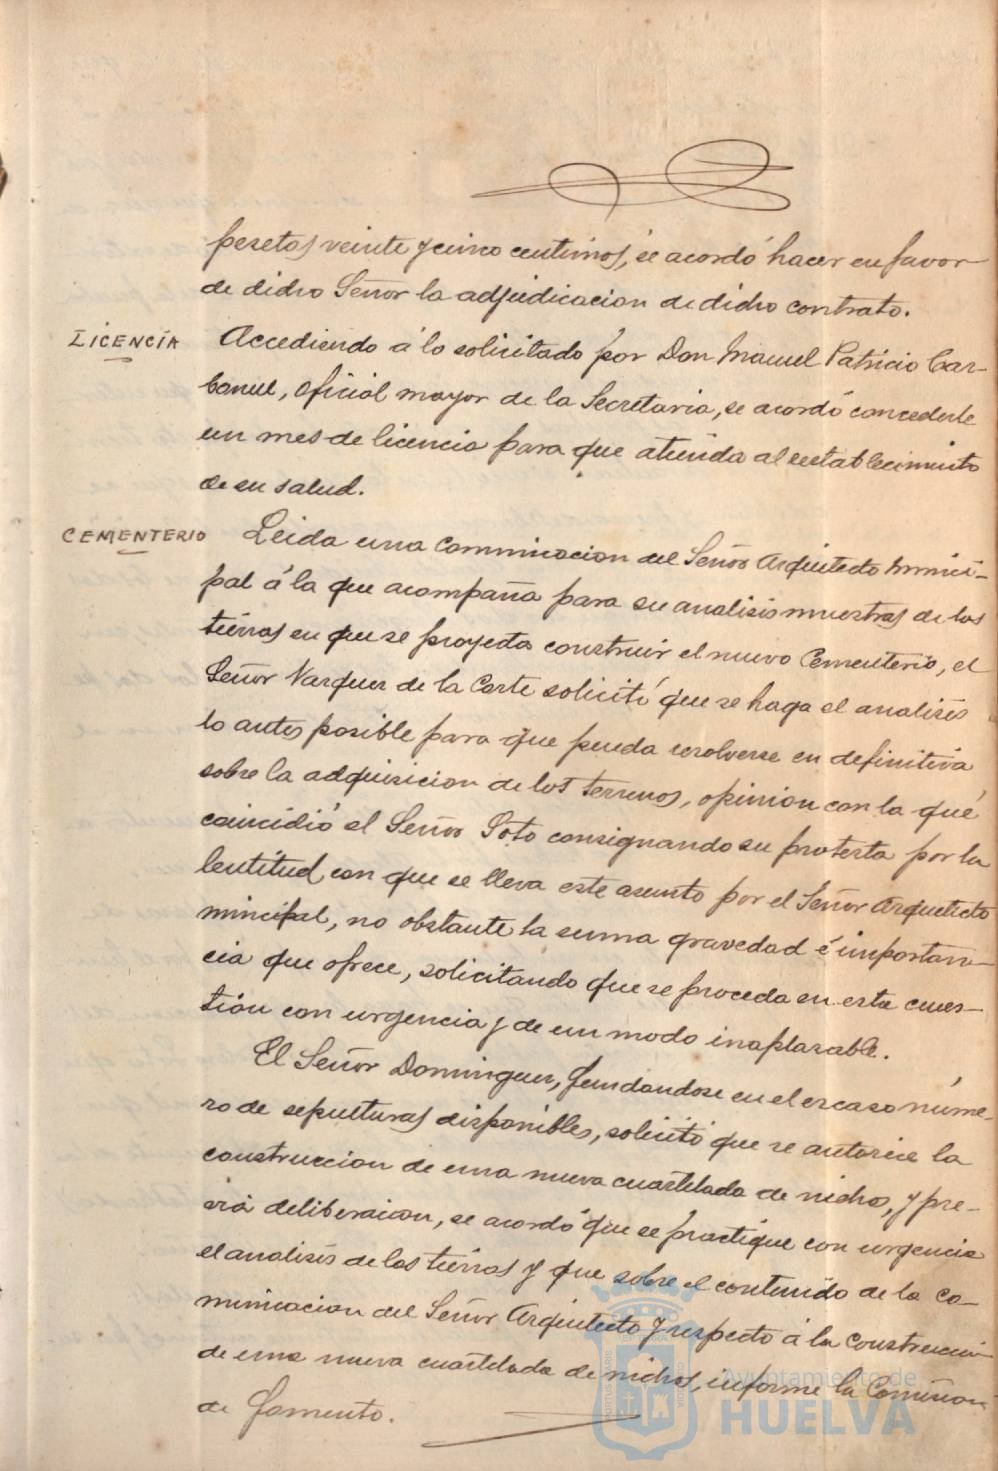 pesetas veinte y cinco centimos, se acordó hacer en favor
de dicho Señor la adjudicacion de dicho contrato.
LICENCIA
Accediendo á lo solicitado por Don Manuel Patricio Gar-
banue, Oficial mayor de la Secretaria, se acordó concederle
un mes de licencia para que atienda al restablecimiento
de su salud.
CEMENTERIO
Leida una comunicacion del Señor Arquitecto munici-
pal á la que acompaña para su analisis muestras de las
tierras en que se proyecta construir el nuevo Cementerio, el
Señor Vazquez de la Corte solicitó que se haga el analisis
lo antes posible para que pueda resolverse en definitiva
sobre la adquisicion de los terrenos, opinion con la que
coincidió el Señor Soto consignando su protesta por la
lentitud con que se lleva este asunto por el Señor Arquitecto
municipal, no obstante la suma gravedad é importan-
cia que ofrece, solicitando que se proceda en esta cues-
tión con urgencia y de un modo inaplazable.
El Señor Dominguez, fundandose en el escaso núme-
ro de sepulturas disponibles, solicitó que se autorice la
construccion de una nueva cuartelada de nichos, y pre-
via deliberacion, se acordó que se practique con urgencia
el analisis de las tierras y que sobre el contenido de la co-
municacion del Señor Arquitecto y respecto á la construccion
de una nueva cuartelada de nichos, informe la Comision
de Fomento.
Ayuntamiento de
HUELVA